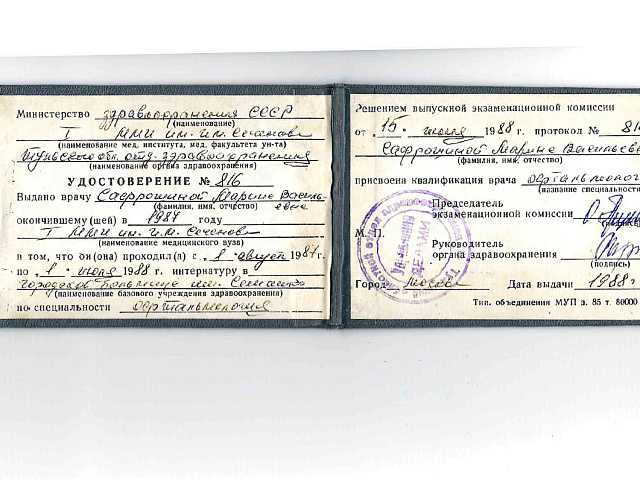 Министерство здравоохранения СССР
(наименование)
I ММИ им. И.М. Сеченова
(наименование мед. института, мед. факультета ун-та)
Тульского обл. отд. здравоохранения
(наименование органа здравоохранения)
УДОСТОВЕРЕНИЕ № 816
Выдано врачу Сафрошиной Марине Василь-
евне
(фамилия, имя, отчество)
окончившему(шей) в 1987 году
I ММИ им. И.М. Сеченова
(наименование медицинского вуза)
в том, что он(она) проходил(а) с 1 август 1987г.
по 1 июля 1988 г. интернатуру в
городской больнице им.
(наименование базового учреждения здравоохранения)
по специальности офтальмология
Решением выпускной экзаменационной комиссии
от "15" июля 1988 г. протокол № 816
Сафрошиной Марине Васильевне
(фамилия, имя, отчество)
присвоена квалификация врача офтальмолог
(название специальности
Председатель
экзаменационной комиссии
(подпись)
М. П.
Руководитель
органа здравоохранения
(подпись)
Город Москва Дата выдачи 1988 г.
Тип. объединения МУП з. 85 т. 80000